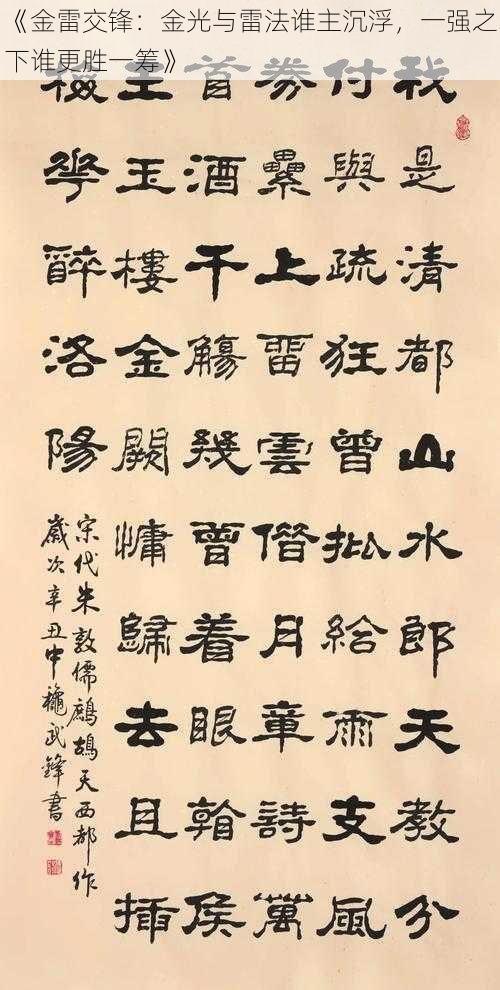 《金雷交锋：金光与雷法谁主沉浮，一强之
下谁更胜一筹》
我是清都山水郎天教分
付與疏狂曾批給雨支風
券纍上留雲借月章詩萬
首酒千觴幾曾着眼看侯
王玉樓金闕慵歸去且插
梅花醉洛陽
宋代朱敦儒鷓鴣天西都作
歲次辛丑中穐武鋒書